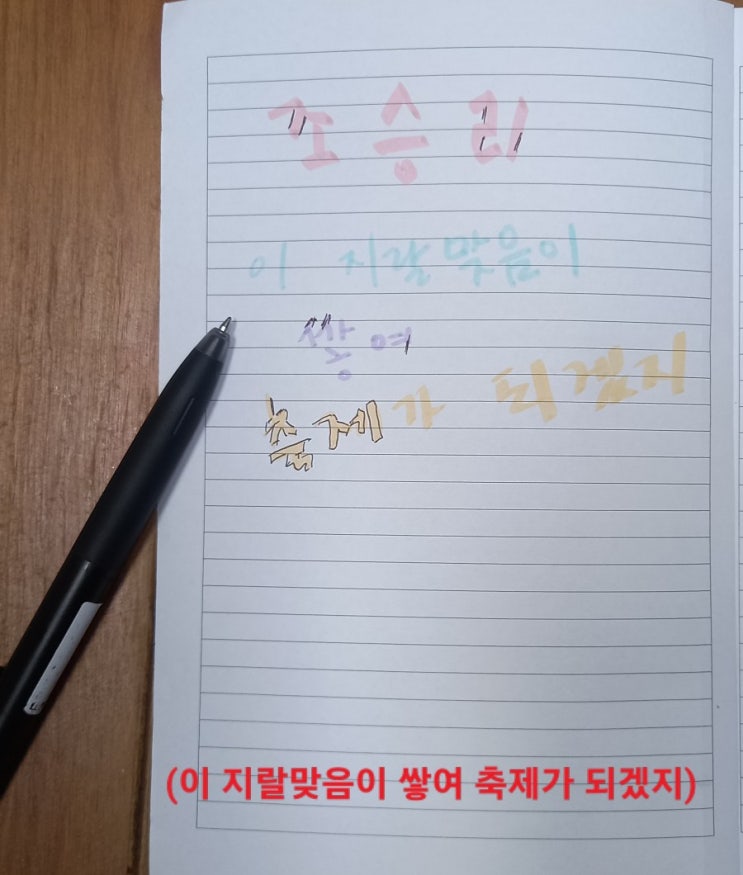 조승리
이 지랄맞음이
쌓여
축제가 되겠지
(이 지랄맞음이 쌓여 축제가 되겠지)